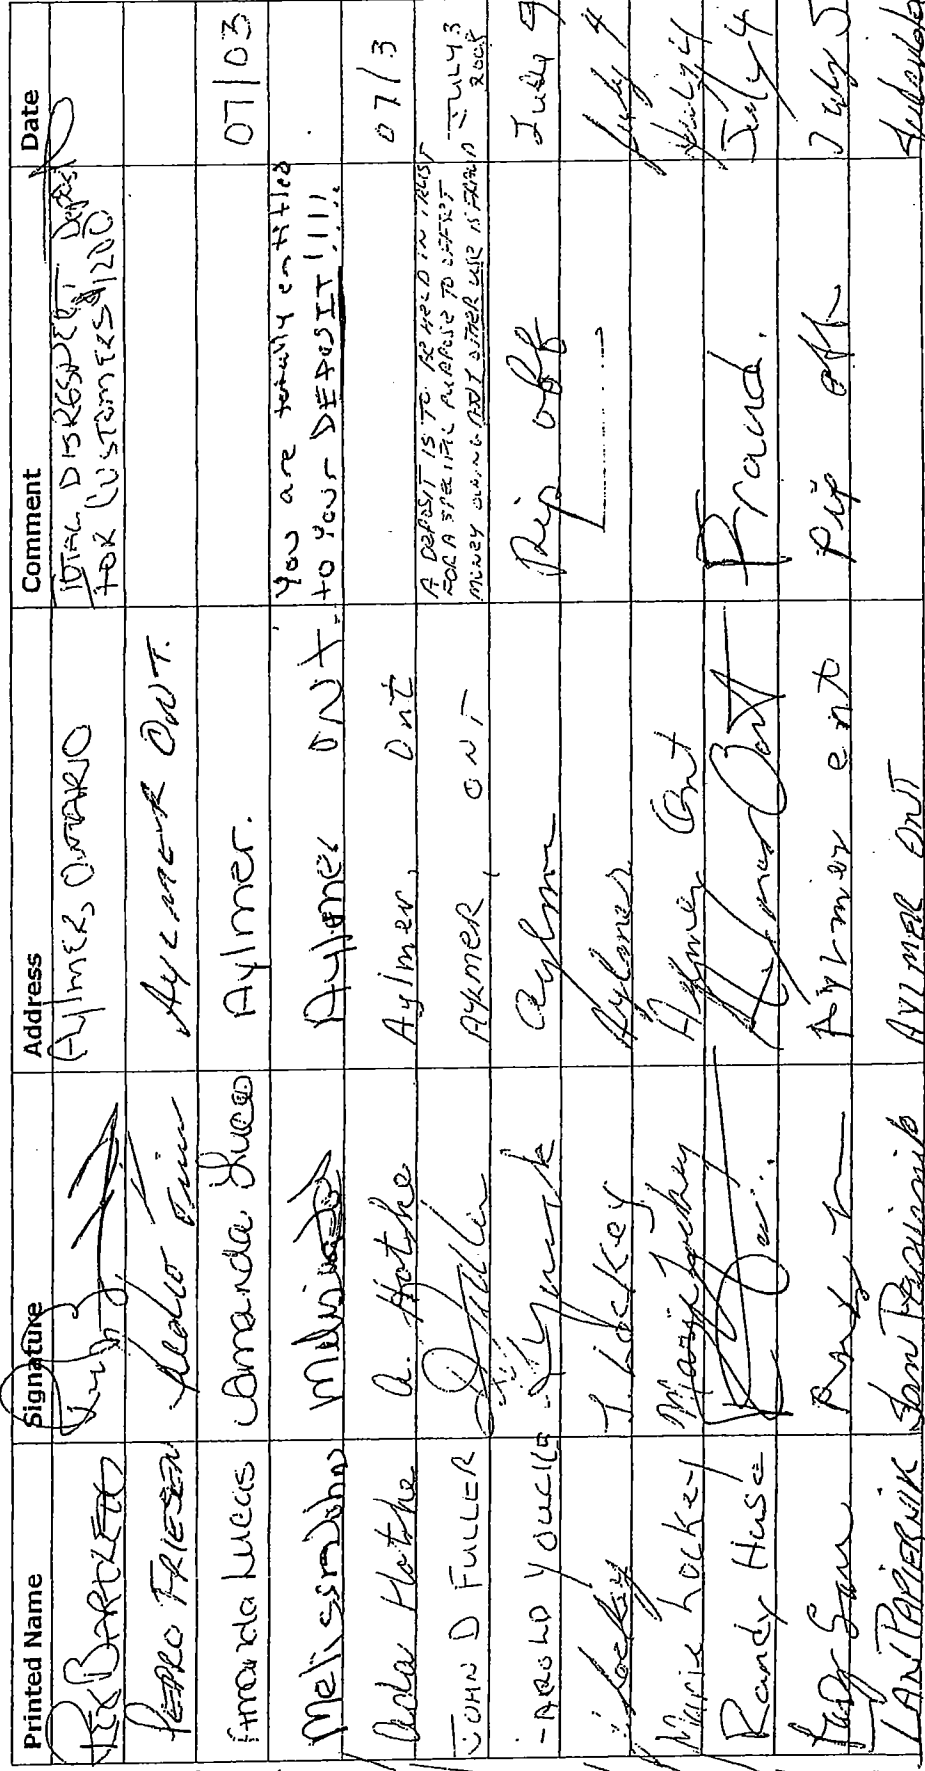 Printed Name Signature Address Comment Date
Rex BARTLETT AylmER, ONTARIO TOTAL DISRESPECT, Deposit
FOR CUSTOMERS $1200
PEDRO FRIESEN AYLMER ONT.
Amanda Lucas Amanda Lucas Aylmer. 07/03
Melissa Melissa Aylmer ONT. You are totally entitled
to your DEPOSIT!!!!
Anda Hathe a. Hathe Aylmer, Ont 07/3
JOHN D FULLER AYLMER, ONT A DEPOSIT IS TO BE HELD IN TRUST JULY 3
FOR A SPECIFIC PURPOSE TO OFFSET 2008
MONEY OWING ANY OTHER USE IS FRAUD
HAROLD YOUCK Aylmer Rip off July
Lockey J. Lockey Aylmer July 4
Marie Lockey Marie Lockey Aylmer Ont July 4
Randy Huse Aylmer Ont Fraud. July 4
Aylmer ont Rip off July 5
IAN PAPIERNIK Ian Papiernik AYLMER ONT